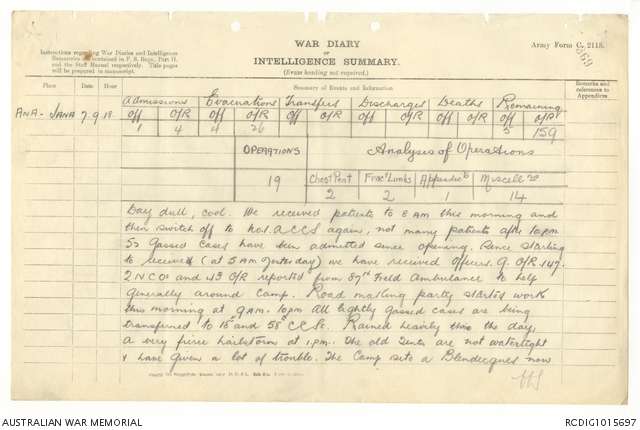 Instructions regarding War Diaries and Intelligence
Summaries are contained in F. S. Regs., Part II.
and the Staff Manual respectively. Title pages
will be prepared in manuscript.
WAR DIARY
OR
INTELLIGENCE SUMMARY.
(Erase heading not required.)
Army Form C. 2118.
Place Date Hour Summary of Events and Information Remarks and references to Appendices
ANA-JANA 7.9.18
Admissions Evacuations Transfers Discharges Deaths Remaining
off O/R off O/R off O/R off O/R off O/R off O/R
1 4 4 26 5 159
OPERATIONS Analysis of Operations
19 Chest Pent Frac Limbs Appendic Miscell
2 2 1 14
Day dull, cool. We received patients to 8 AM this morning and
then switch off to No 2 ACCS again, not many patients after 10 pm
50 Gassed cases have been admitted since opening. Since starting
to received (at 5 AM yesterday) we have received officers 9. O/R 147.
2 NCOs and 43 O/R reported from 87th Field Ambulance to help
generally around Camp. Road making party started work
this morning at 9 am. 10 pm All lightly gassed cases are being
transferred to 15 and 58 CCS. Rained heavily thro the day,
a very fierce hailstorm at 1 pm. The old Tents are not watertight
& have given a lot of trouble. The Camp site a Blendecques now
AUSTRALIAN WAR MEMORIAL
RCDIG1015697